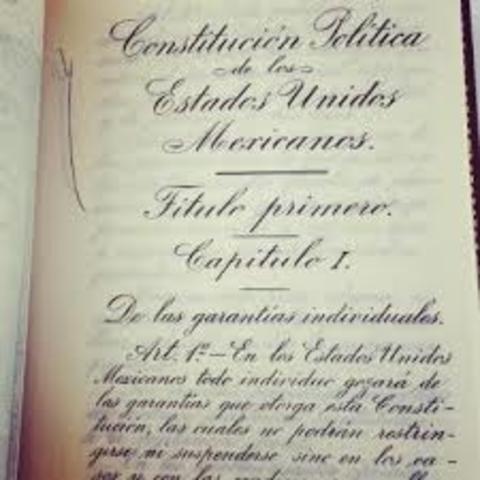 Constitución Política
de los
Estados Unidos
Mexicanos.
Título primero.
Capítulo I.
De las garantías individuales.
Art. 1º.— En los Estados Unidos
Mexicanos todo individuo gozará de
las garantías que otorga esta Consti-
tución, las cuales no podrán restrin-
girse ni suspenderse sino en los ca-
sos y con las